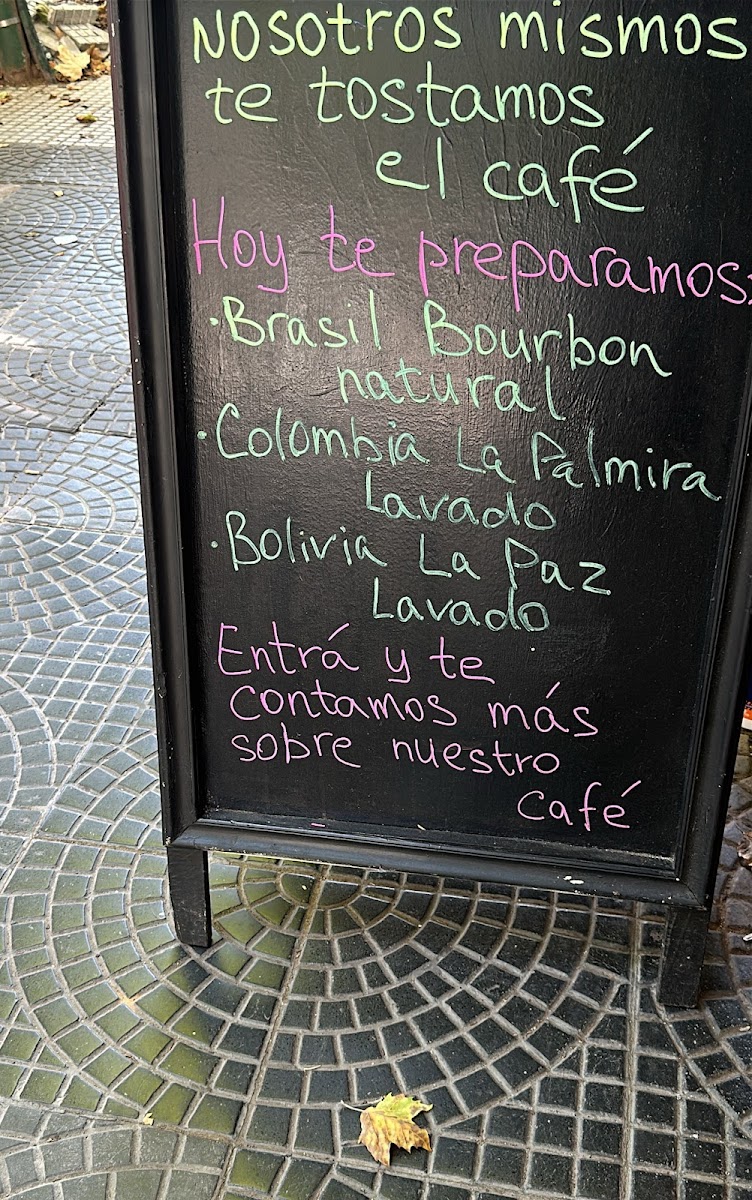 Nosotros mismos
te tostamos
el café
Hoy te preparamos:
·Brasil Bourbon
natural
·Colombia La Palmira
Lavado
·Bolivia La Paz
Lavado
Entrá y te
contamos más
sobre nuestro
café